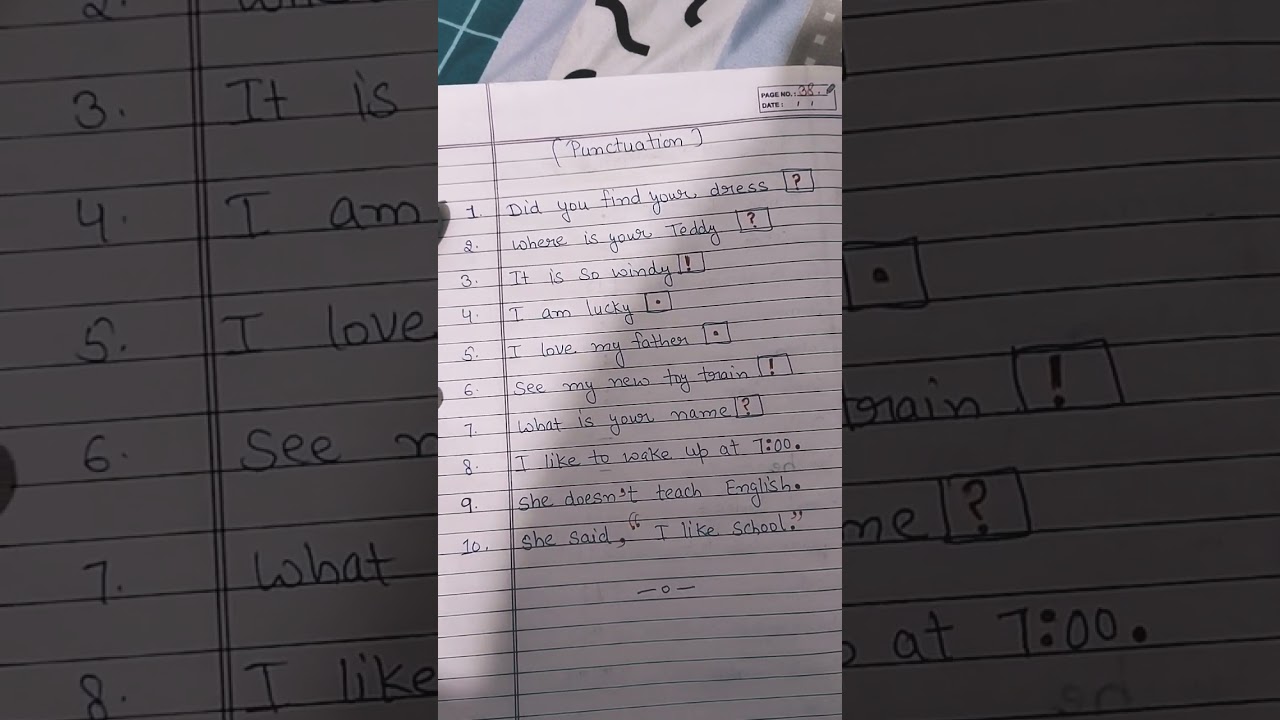 PAGE NO.: 38.
DATE: , ,
(Punctuation)
1. Did you find your dress ?
2. Where is your Teddy ?
3. It is so windy !
4. I am lucky .
5. I love my father .
6. See my new toy train !
7. What is your name ?
8. I like to wake up at 7:00.
9. She doesn't teach English.
10. She said, “ I like School.”
—o—